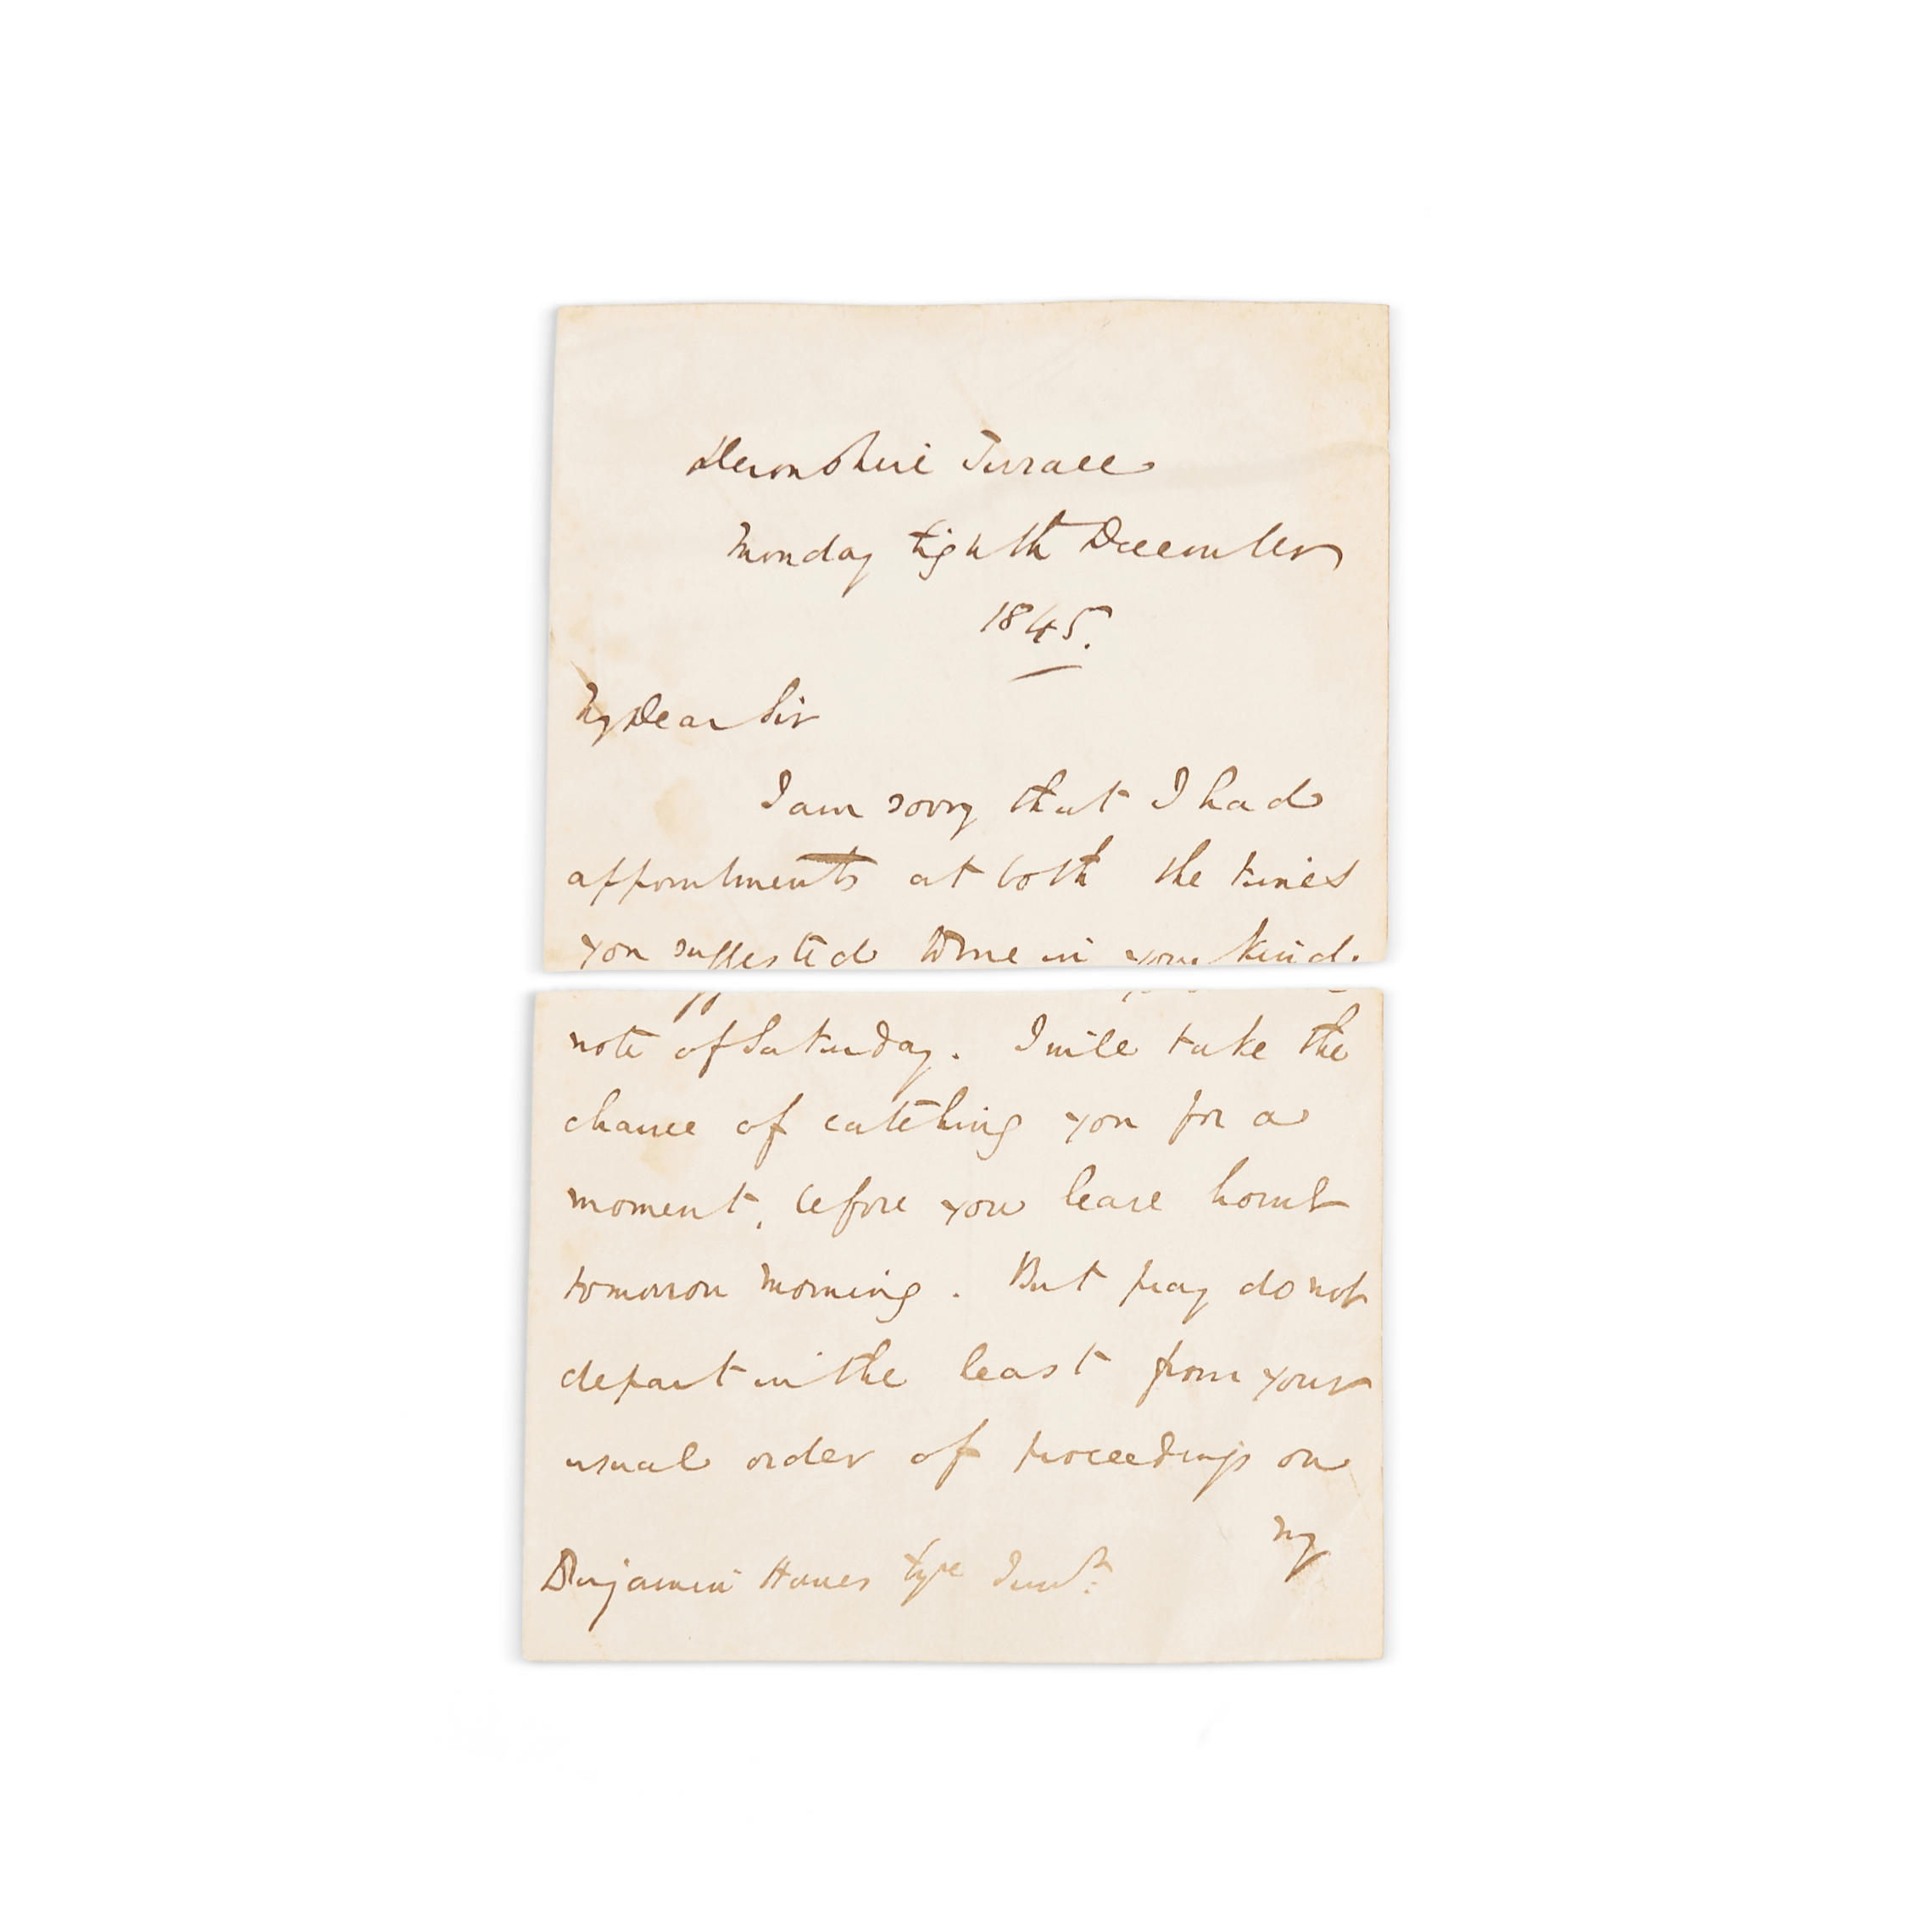 Devonshire Terrace
Monday Eighth December
1845.
My Dear Sir
I am sorry that I had
appointments at both the times
you suggested to me in your kind
note of Saturday. I will take the
chance of catching you for a
moment, before you leave home
tomorrow morning. But pray do not
depart in the least from your
usual order of proceedings on
my
Benjamin Hawes Esqre Junr.